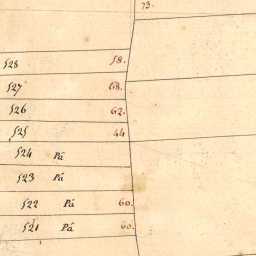 73.
528 58.
527 68.
526 62.
525 44
524 Pá
523 Pá
522 Pá 60.
521 Pá 60.